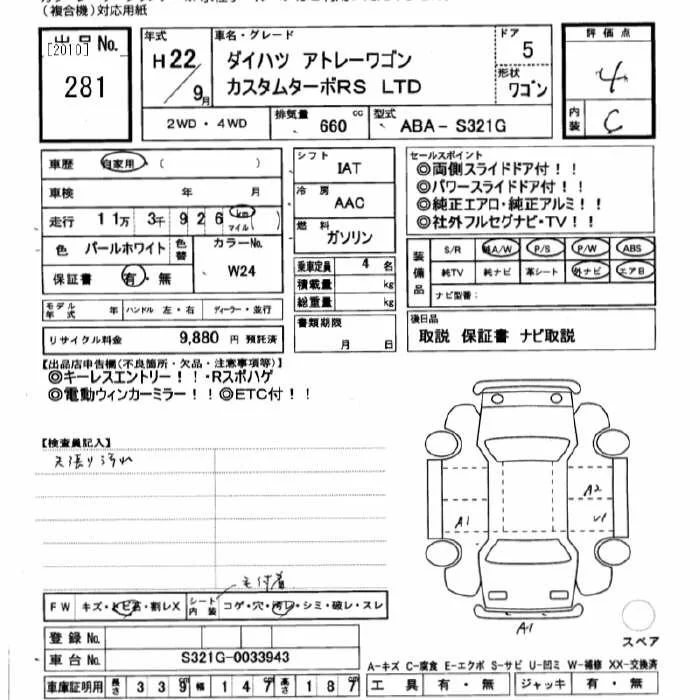 （複合機）対応用紙
出品No.
[2010]
281
年式
H22/9月
車名・グレード
ダイハツ アトレーワゴン
カスタムターボRS LTD
ドア 5
形状 ワゴン
評価点
4
内装 C
2WD・4WD
排気量 660 cc
型式 ABA-S321G
車歴 自家用（ ）
車検 年 月
走行 11万 3千 926 km マイル( )
色 パールホワイト 色替 カラーNo. W24
保証書 有・無
モデル年式 年 ハンドル 左・右 ディーラー・並行
リサイクル料金 9,880 円 預託済
シフト
IAT
冷房
AAC
燃料
ガソリン
乗車定員 4 名
積載量 kg
総重量 kg
書類期限
月 日
セールスポイント
◎両側スライドドア付！！
◎パワースライドドア付！！
◎純正エアロ・純正アルミ！！
◎社外フルセグナビ・TV！！
装備品
S/R 純A/W P/S P/W ABS
純TV 純ナビ 革シート 外ナビ エアB
ナビ型番：
後日品
取説 保証書 ナビ取説
【出品店申告欄(不良箇所・欠品・注意事項等)】
◎キーレスエントリー！！・Rスポハゲ
◎電動ウィンカーミラー！！◎ETC付！！
【検査員記入】
天張り汚れ
A2
A1
A1
スペア
毛付着
FW キズ・トビ石・割レX
シート内装 コゲ・穴・汚レ・シミ・破レ・スレ
登録No.
車台No. S321G-0033943
車庫証明用 長さ 339 幅 147 高さ 187
A-キズ C-腐食 E-エクボ S-サビ U-凹ミ W-補修 XX-交換済
工具 有・無 ジャッキ 有・無